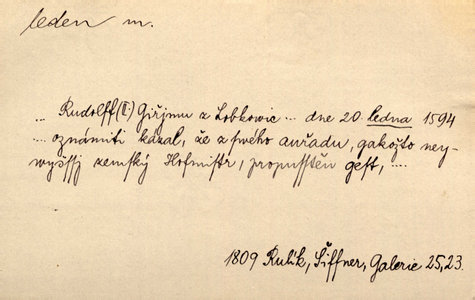 leden m.
.. Rudolff (II) Giřjmu z Lobkowic ... dne 20. ledna 1594
.... oznámiti kázal, že z swého auřadu, gakožto ney-
wyššj zemský Hofmistr, propusstěn gest, ....
1809 Rulík, Šiffner, Galerie 25,23.